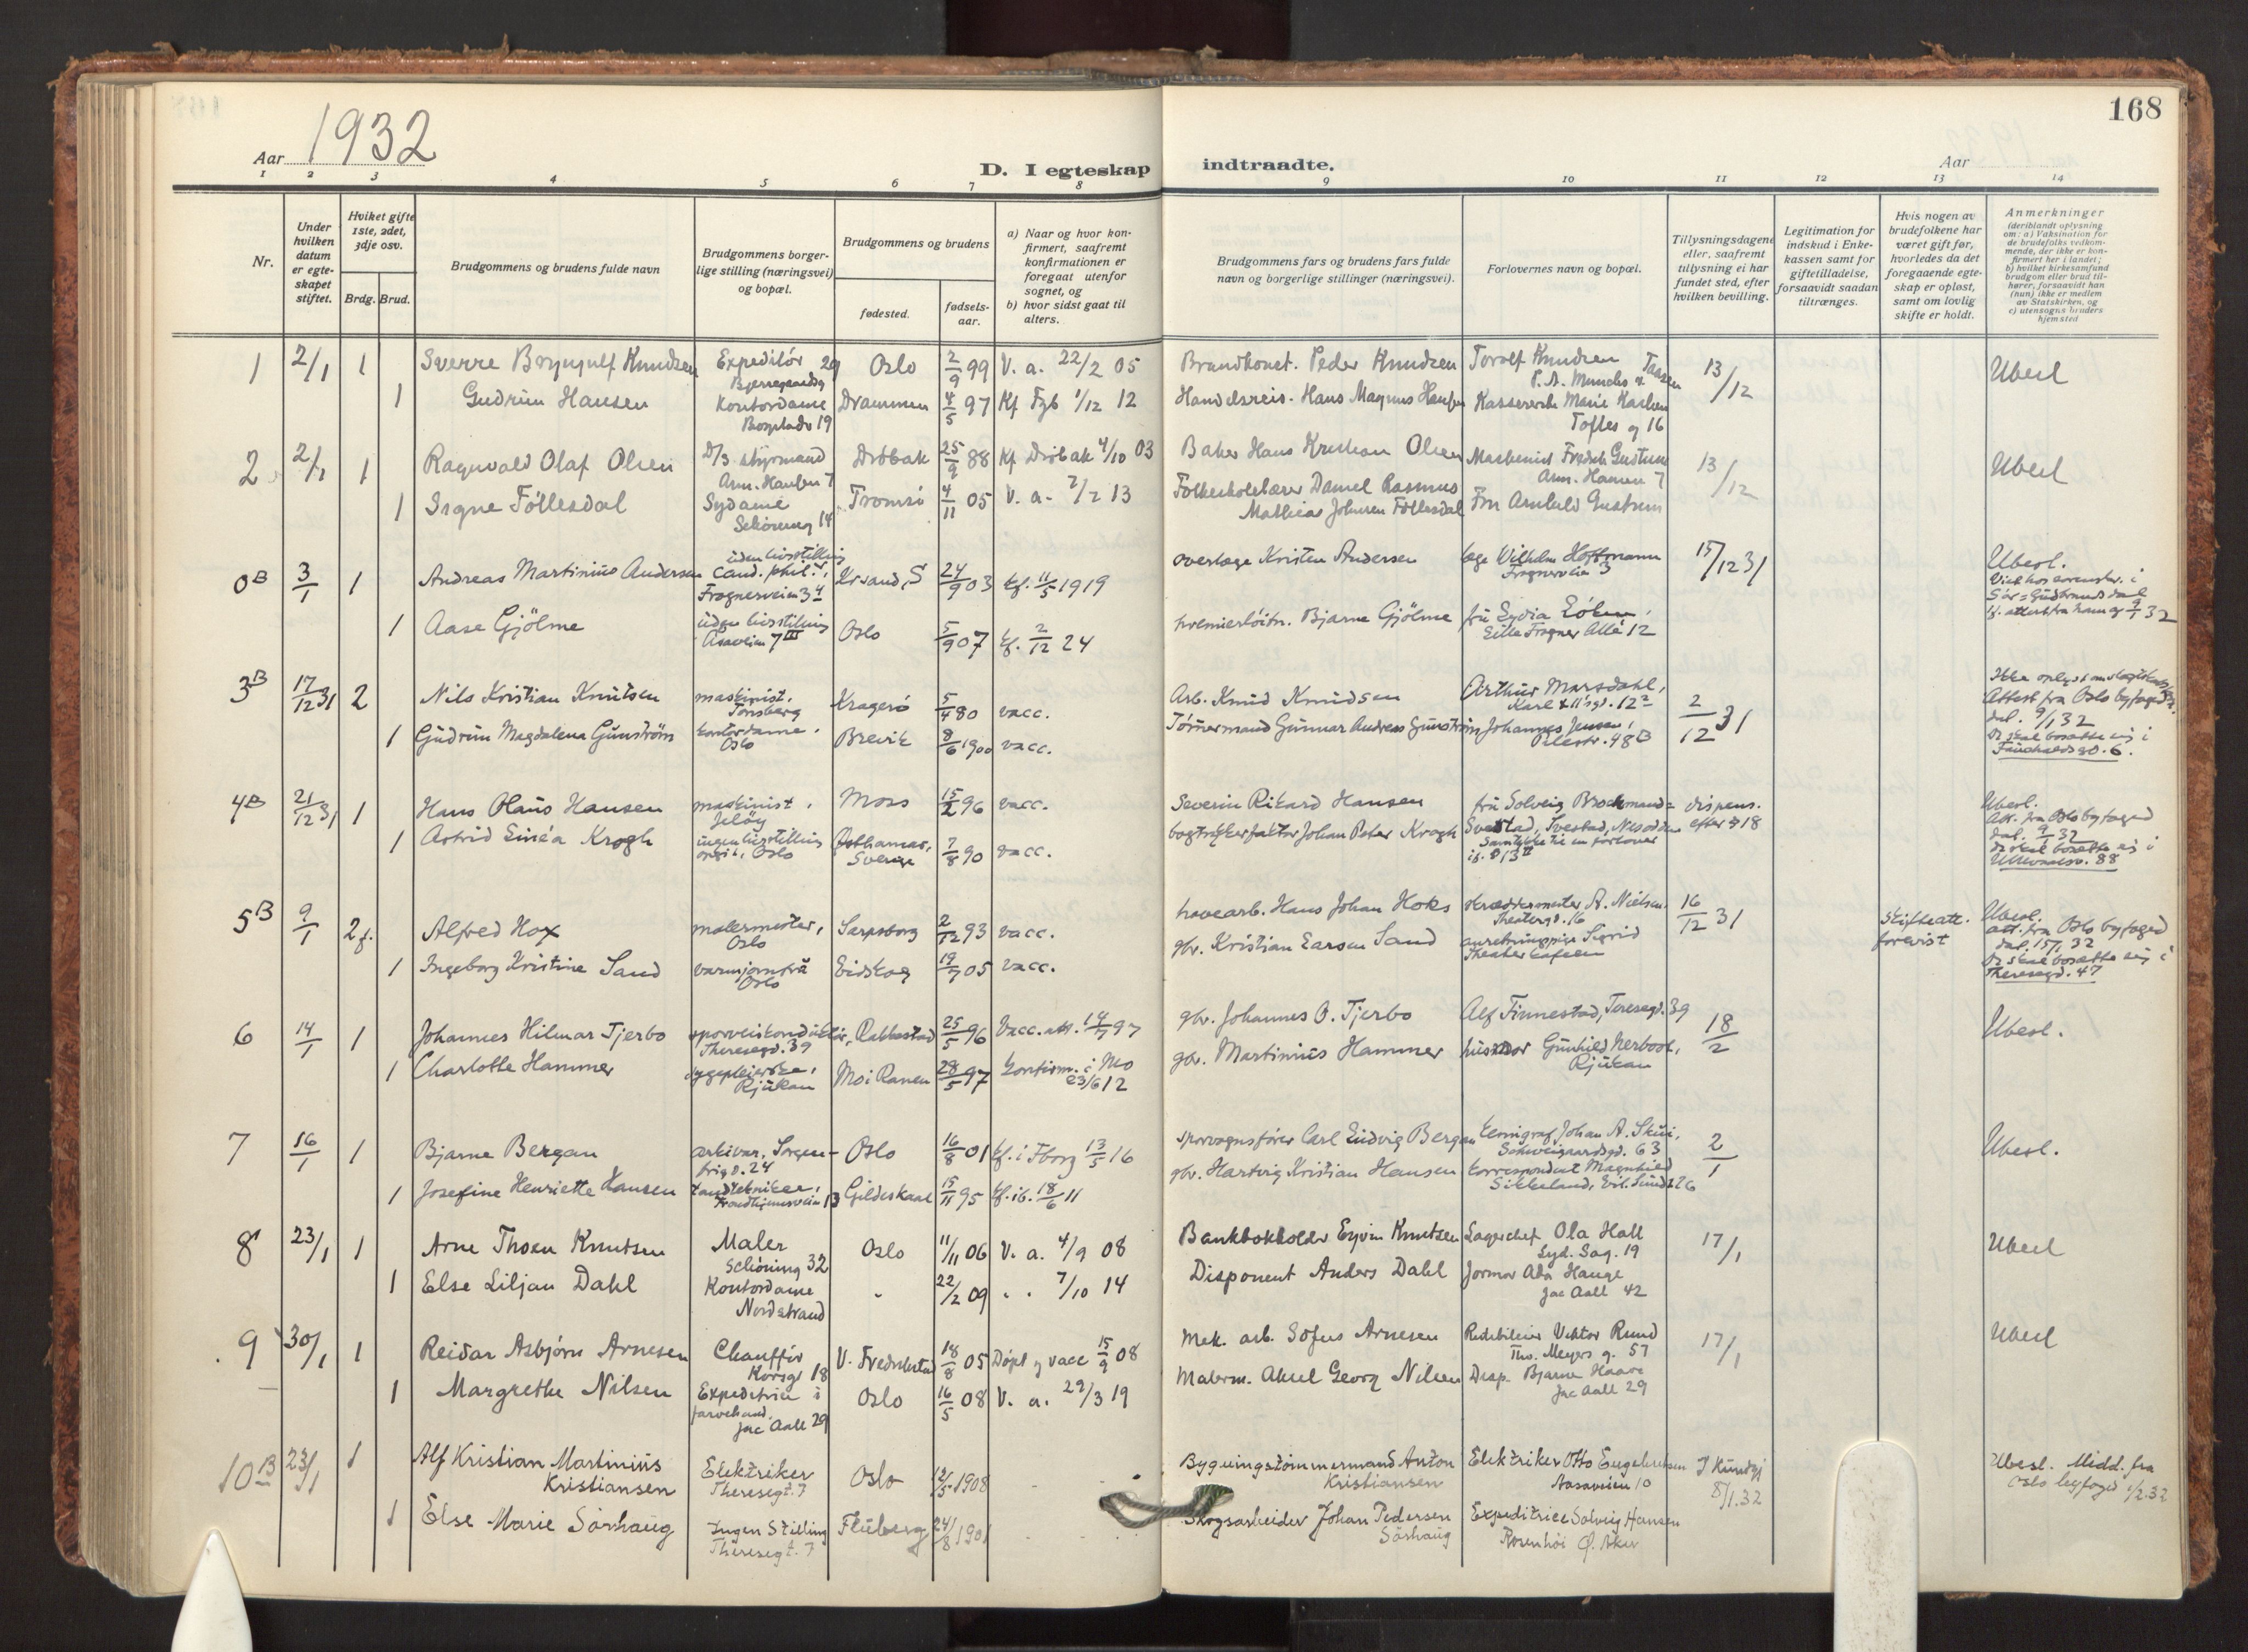 168
Aar 1932
D. I egteskap indtraadte.
Aar
1 2 3 4 5 6 7 8 9 10 11 12 13 14
Nr.
Under hvilken datum er egteskapet stiftet.
Hviket gifte 1ste, 2det, 3dje osv.
Brdg. Brud.
Brudgommens og brudens fulde navn
Brudgommens borgerlige stilling (næringsvei) og bopæl.
Brudgommens og brudens
fødested.
fødselsaar.
a) Naar og hvor konfirmert, saafremt konfirmationen er foregaat utenfor sognet, og
b) hvor sidst gaat til alters.
Brudgommens fars og brudens fars fulde navn og borgerlige stillinger (næringsvei).
Forlovernes navn og bopæl.
Tillysningsdagene eller, saafremt tillysning ei har fundet sted, efter hvilken bevilling.
Legitimation for indskud i Enkekassen samt for giftetilladelse, forsaavidt saadan tiltrænges.
Hvis nogen av brudefolkene har været gift før, hvorledes da det foregaaende egteskap er opløst, samt om lovlig skifte er holdt.
Anmerkninger
(deriblandt oplysning om: a) Vaksination for de brudefolks vedkommende, der ikke er konfirmert her i landet;
b) hvilket kirkesamfund brudgom eller brud tilhører, forsaavidt han (hun) ikke er medlem av Statskirken, og
c) utensogns bruders hjemsted
1 2/1 1 Sverre Knudsen Expeditør 29 Oslo 2/9 99 V. a. 22/2 05 Peder Knudsen Torolf Knudsen 13/12 Ubesl
1 Gudrun Hansen Kontordame 19 Drammen 4/5 97 Kf 1/12 12 Handelsreis. Hans Magnus Hansen Marie Karlsen 16
2 2/1 1 Ragnvald Olaf Olsen D/S styrmand Arm. Hansen 7 Drøbak 25/9 88 Kf Drøbak 4/10 03 Baker Hans Kristian Olsen 13/12 Ubesl
1 Signe Föllesdal Sydame Schöning 14 Tromsö 4/11 05 V. a. 7/2 13 Folkeskolelærer Daniel Rasmus Mathias Johnsen Föllesdal Fru
0B 3/1 1 Andreas Martinius Andersen uden livsstilling cand. phil., Frognerveien 34 Kr sand, S 24/9 03 kf. 11/5 1919 overlæge Kristen Andersen læge Wilhelm Hoffmann Frognerveien 3 15/12 31 Ubesl.
1 Aase Gjölme uden livsstilling Aasaveien 7 III Oslo 5/9 07 kf. 2/12 24 premierlöitn. Bjarne Gjölme fru Lydia Lille Frogner Allé 12
3B 17/12 31 2 Nils Kristian Knutsen maskinist, Tönsberg Kragerö 5/4 80 vacc. Arb. Knud Knudsen Arthur Marsdahl, 2/12 31 Attest fra Oslo byfoged dat. 9/1 32
1 Gudrun Magdalena Gunström kontordame, Oslo Brevik 8/6 1900 vacc. Tömmermand Gunnar Andreas Gunström Johannes Jensen, Pilestr. 48B De skal bosætte sig i
4B 21/12 31 1 Hans Olaus Hansen maskinist, Jelöy Moss 15/2 96 vacc. Severin Rikard Hansen fru Solveig Svestad, Nesodden dispens. efter § 18 Ubesl. Att. fra Oslo byfoged dat. 9/1 32
1 Astrid Linéa Krogh ingen livsstilling Oslo Östhammar, Sverige 7/8 90 vacc. bogtrykkerfaktor Johan Peter Krogh De skal bosætte sig i Ullevaalsv. 88
5B 9/1 2 f. Alfred Hox malermester, Oslo Sarpsborg 2/12 93 vacc. havearb. Hans Johan Hoks skræddermester A. Nielsen, Theatergd. 16 16/12 31 Skifteatt. forevist Ubesl. att. fra Oslo byfoged dat. 15/1 32
1 Ingeborg Kristine Sand varmjomfru Oslo Eidskog 19/7 05 vacc. gbr. Kristian Larsen Sand Sigrid Theaterkafeen De skal bosætte sig i Theresegd. 47
6 14/1 1 Johannes Hilmar Tjerbo sporveiskonduktör, Theresegd. 39 Rakkestad 25/5 96 Vacc. att. 14/7 97 gbr. Johannes O. Tjerbo Alf Finnestad, Teresegd. 39 18/2 Ubesl.
1 Charlotte Hammer sygepleierske, Rjukan Mo i Ranen 28/5 97 konfirm. i Mo 23/6 12 gbr. Martinius Hammer husmor Gunhild Rjukan
7 16/1 1 Bjarne Bergan arkivar, Sorgenfrigd. 24 Oslo 16/8 01 kf. i Fborg 13/5 16 sporvognsfører Carl Ludvig Bergan Johan A. Skui, Schweigaardsgd. 63 2/1 Ubesl.
1 Josefine Henriette Hansen tandtekniker, Trondhjemsveien 13 Gildeskaal 15/11 95 kf. ib. 18/6 11 gbr. Hartvig Kristian Hansen korrespondent Magnhild Sikkeland, Eil. Sundt 26
8 23/1 1 Arne Thoen Knutsen Maler Schöning 32 Oslo 11/11 06 V. a. 4/9 08 Bankbokholder Eyvin Knutsen Lagerchef Ola Hall Lyd. Sag. 19 17/1 Ubesl
1 Else Liljan Dahl Kontordame Nordstrand " 22/2 09 " " 7/10 14 Disponent Anders Dahl Jormor Ada Hauge Jac Aall 42
9 30/1 1 Reidar Asbjørn Arnesen Chauffør Korsgt 18 V. Fredrikstad 18/8 05 Döpt og vacc 15/9 08 Mek. arb. Sofus Arnesen Viktor Ruud Tho. Meyers g. 57 17/1 Ubesl
1 Margrethe Nilsen Expeditrice i farvehand. Jac Aall 29 Oslo 16/5 08 V. a. 29/3 19 Malerm. Aksel Georg Nilsen Disp. Bjarne Haave Jac Aall 29
10B 23/1 1 Alf Kristian Martinius Kristiansen Elektriker Theresegt. 7 Oslo 12/5 1908 - Bygningstömmermand Anton Kristiansen Elektriker Otto Engebretsen Aasaveien 10 8/1.32 Ubesl. Midd. fra Oslo byfoged 1/2.32
1 Else Marie Sörhaug Ingen Stilling Theresegt. 7 Fluberg 24/8 1901 - Skogsarbeider Johan Pedersen Sörhaug Expeditrice Solveig Hansen Rosenhöi Ø. Aker